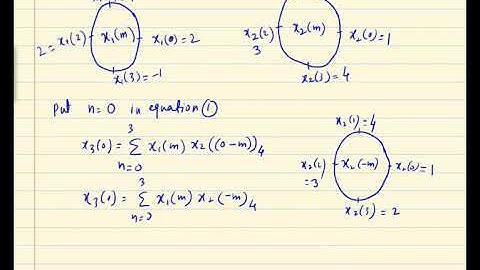 2 = x₁(2) x₁(m) x₁(0) = 2
x₁(3) = -1
x₂(2) x₂(m) x₂(0) = 1
3
x₂(3) = 4
Put n=0 in equation ①
x₃(0) = 3 Σ n=0 x₁(m) x₂((0-m))₄
x₃(0) = 3 Σ n=0 x₁(m) x₂(-m)₄
x₂(1) = 4
x₂(2) x₂(-m) x₂(0) = 1
= 3
x₂(3) = 2